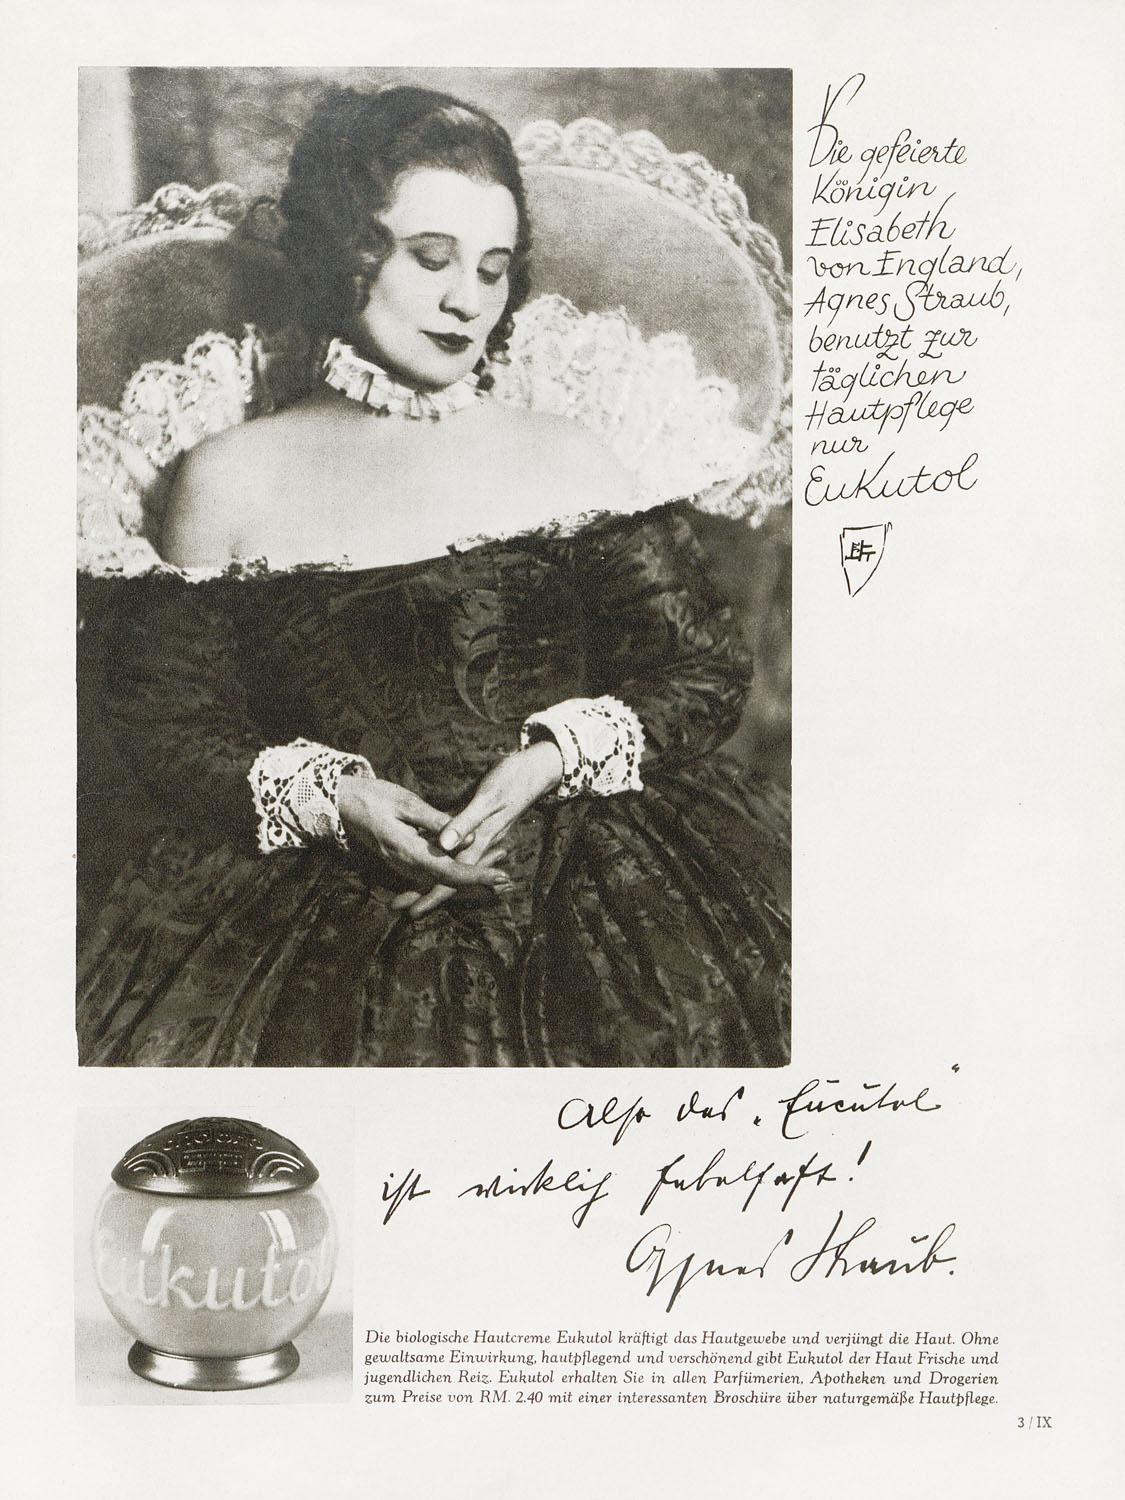 Die gefeierte
Königin
Elisabeth
von England,
Agnes Straub,
benutzt zur
täglichen
Hautpflege
nur
Eukutol
Also das „Eucutol“
ist wirklich fabelhaft!
Agnes Straub.
Eukutol
Die biologische Hautcreme Eukutol kräftigt das Hautgewebe und verjüngt die Haut. Ohne
gewaltsame Einwirkung, hautpflegend und verschönend gibt Eukutol der Haut Frische und
jugendlichen Reiz. Eukutol erhalten Sie in allen Parfümerien, Apotheken und Drogerien
zum Preise von RM. 2.40 mit einer interessanten Broschüre über naturgemäße Hautpflege.
3 / IX